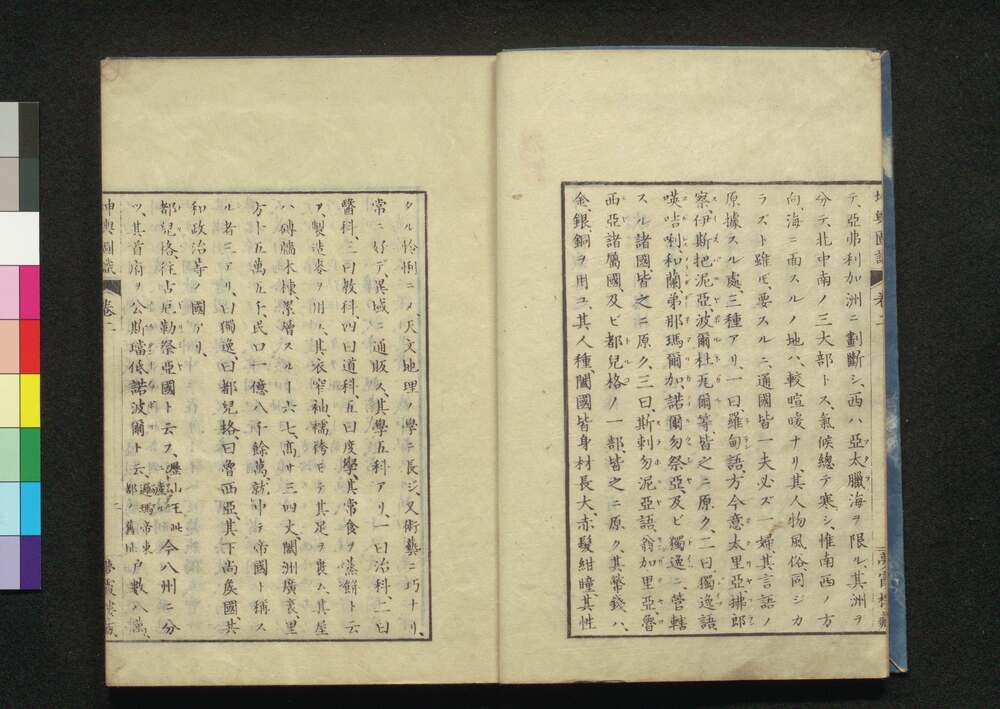 テ、亞弗利加洲ニ劃斷シ、西ハ亞太臘海ヲ限ル、其洲ヲ
分テ、北中南ノ三大部トス、氣候總テ寒シ、惟南西ノ方
向、海ニ面スルノ地ハ、較暄暖ナリ、其人物風俗同ジカ
ラズト雖𪜈、要スルニ、通國皆一夫必ズ一婦、其言語ノ
原據スル處、三種アリ、一曰、羅甸語、方今意太里亞、拂郎
察、伊斯把泥亞、波爾杜瓦爾等皆之ニ原ク、二曰獨逸語、
嘆咭唎、和蘭、弟那瑪爾加、諾爾勿祭亞、及ビ獨逸ニ管轄
スル諸國皆之ニ原ク、三曰、斯剌勿泥亞語、翁加里亞、魯
西亞諸屬國、及ビ都兒格ノ一部、皆之ニ原ク、其幣錢ハ、
金銀銅ヲ用ユ、其人種、闔國皆身材長大、赤髮紺瞳、其性
坤輿圖識
卷二
夢霞樓藏
タル怜悧ニ〆、天文地理ノ學ニ長ジ、又術藝ニ巧ナリ、
常ニ好デ、異域ニ通販ス、其學五科アリ、一曰治科、二曰
醫科、三曰教科、四曰道科、五曰度學、其常食ヲ蒸餅ト云
フ、製造麥ヲ用ユ、其衣窄袖襦袴モテ其足ヲ裹ム、其屋
ハ磚牆木棟、累層スルヿ六七、高サ三四丈、闔洲廣袤、里
方十五萬五千、民口一億八千餘萬、就中テ帝國ト稱ス
ル者三アリ、曰獨逸、曰都兒格、曰魯西亞、其下尚矦國、共
和政治等ノ國アリ、
都兒格、往古厄勒祭亞國ト云フ、今八州ニ分
ツ、其首府ヲ公斯璫低諾波爾ト云 戶數八萬、
坤輿圖識
卷二
二